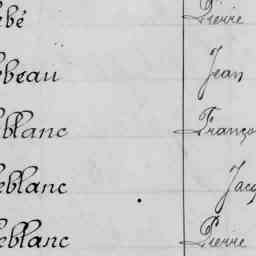 ebé Pierre
ebeau Jean
eblanc Franço
eblanc Jacq
eblanc Pierre